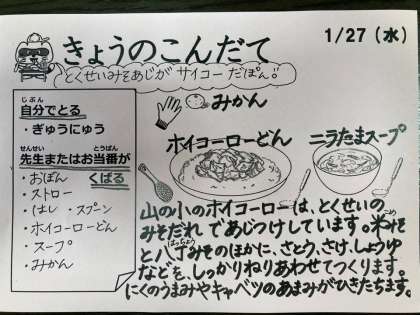 1/27 (水)
きょうのこんだて
とくせいみそあじが サイコー だぽん!!
じぶん
自分でとる
・ぎゅうにゅう
せんせい とうばん
先生またはお当番が
くばる
・おぼん
・ストロー
・はし ・スプーン
・ホイコーローどん
・スープ
・みかん
みかん
ホイコーローどん
ニラたまスープ
山の小のホイコーローは、とくせいの
みそだれであじつけしています。米みそ
はっちょう
と八丁みそのほかに、さとう、さけ、しょうゆ
などを、しっかりねりあわせてつくります。
にくのうまみやキャベツのあまみがひきたちます。